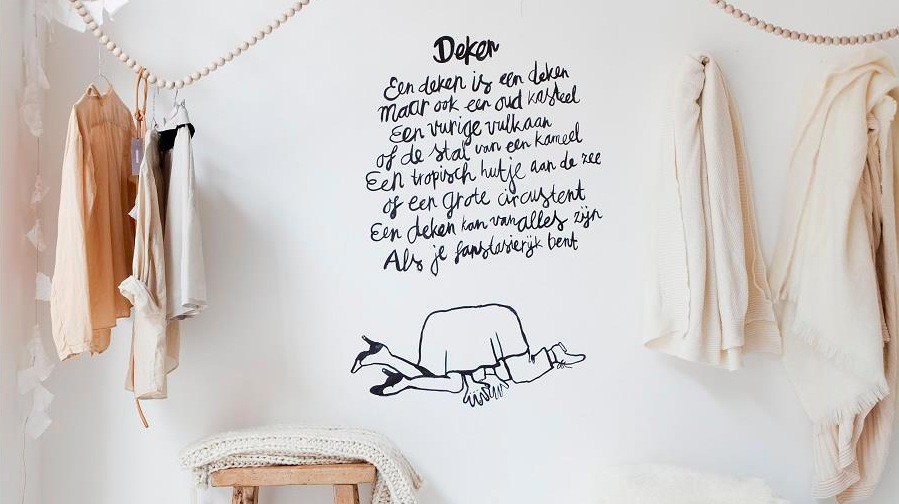 Deken
Een deken is een deken
maar ook een oud kasteel
Een vurige vulkaan
of de stal van een kameel
Een tropisch hutje aan de zee
of een grote circustent
Een deken kan van alles zijn
Als je fanstasierijk bent